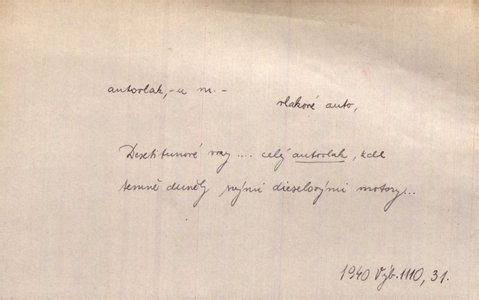 autovlak, -u m. -
vlakové auto,
Desetitunové vozy .... celý autovlak, kde
temně duněly svými dieselovými motory...
1940 Výb. 1110, 31.